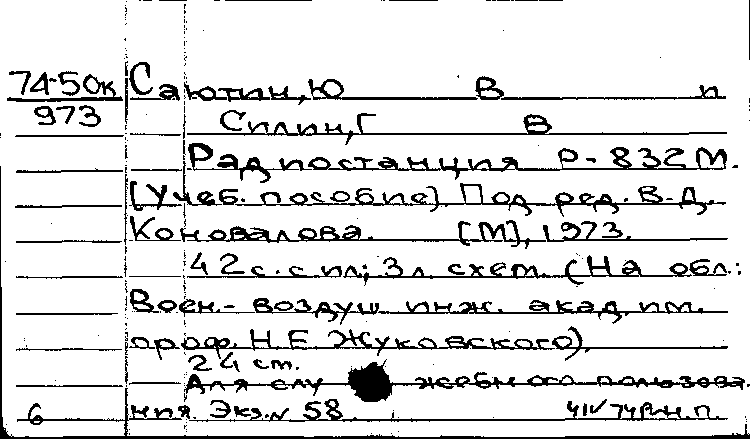 74-50к Саютин, Ю В п
973 Сплин, Г В
Радиостанция Р-832М.
[Учеб. пособие] Под ред. В.Д.
Коновалова. [М], 1973.
42 с. с ил; 3 л. схем. (На обл.:
Воен.- воздуш. инж. акад. им.
проф. Н.Е. Жуковского).
24 см.
Для слу жебного пользова
ния. Экз. № 58.
6